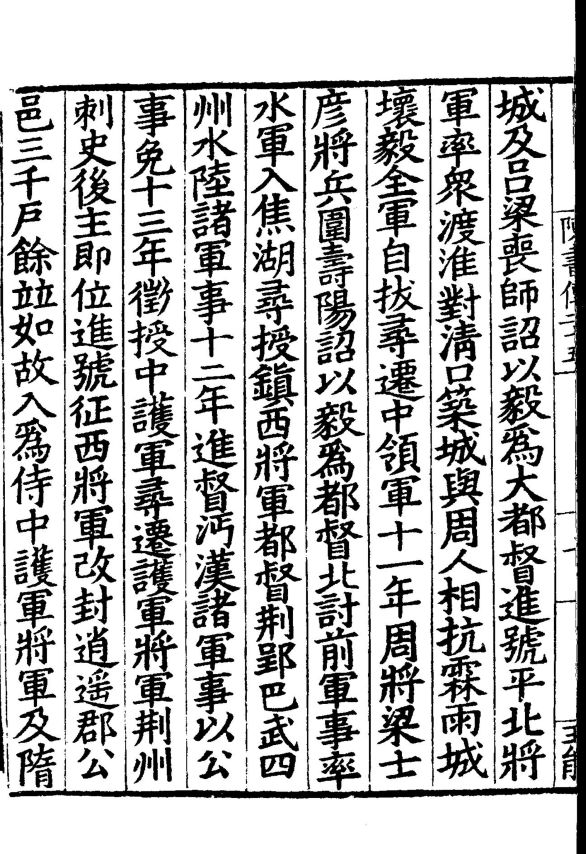 城及呂梁喪師詔以毅爲大都督進號平北將
軍率衆渡淮對清口築城與周人相抗霖雨城
壞毅全軍自拔尋遷中領軍十一年周將梁士
彦將兵圍壽陽詔以毅爲都督北討前軍事率
水軍入焦湖尋授鎮西將軍都督荆郢巴武四
州水陸諸軍事十二年進督沔漢諸軍事以公
事免十三年徵授中護軍尋遷護軍將軍荆州
刺史後主即位進號征西將軍改封逍遥郡公
邑三千戸餘竝如故入爲侍中護軍將軍及隋